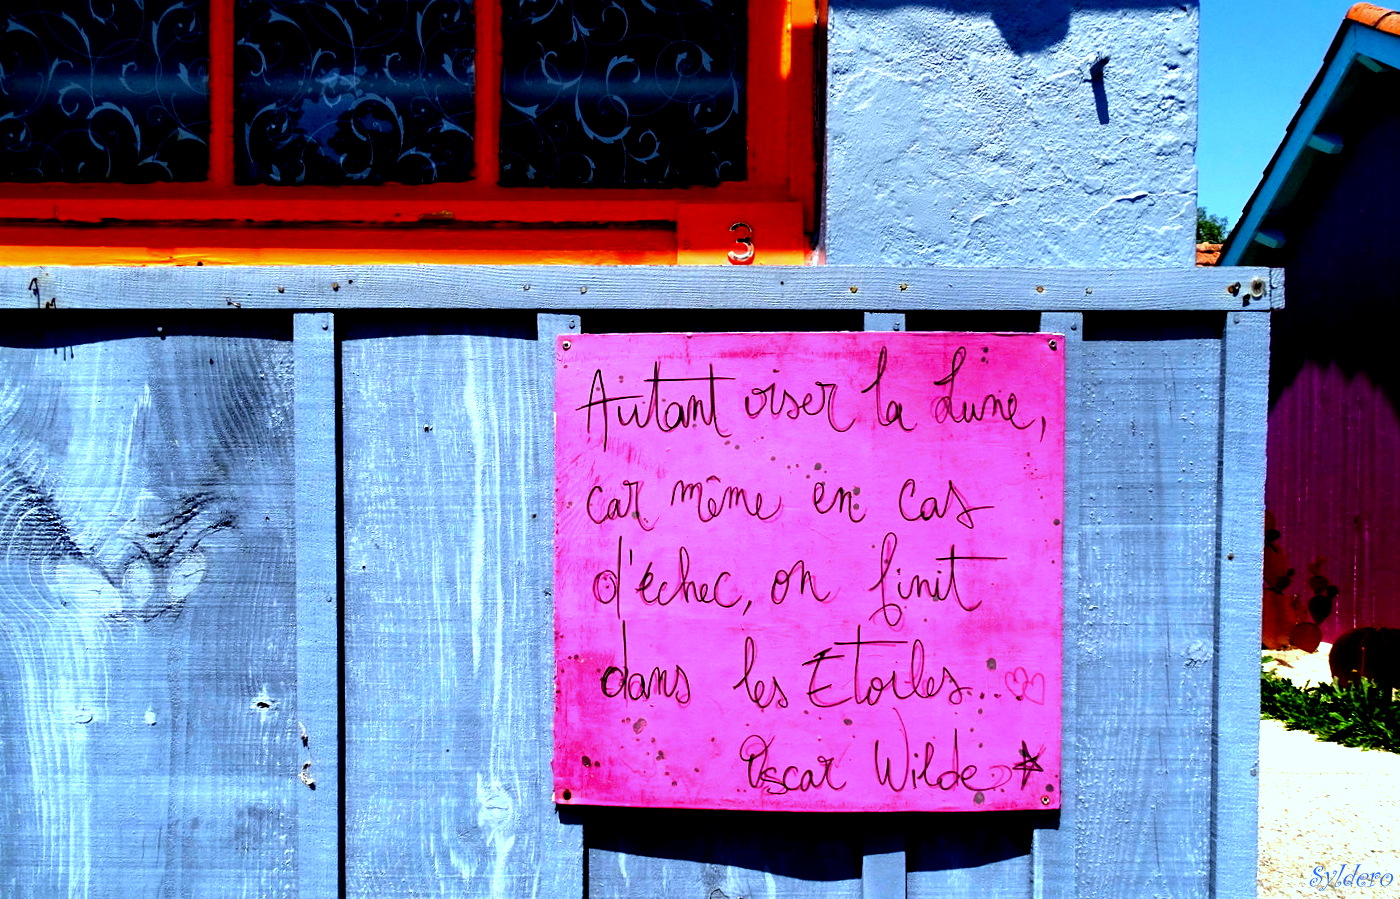 3
Autant viser la Lune,
car même en cas
d'échec, on finit
dans les Etoiles...
Oscar Wilde
Syldero